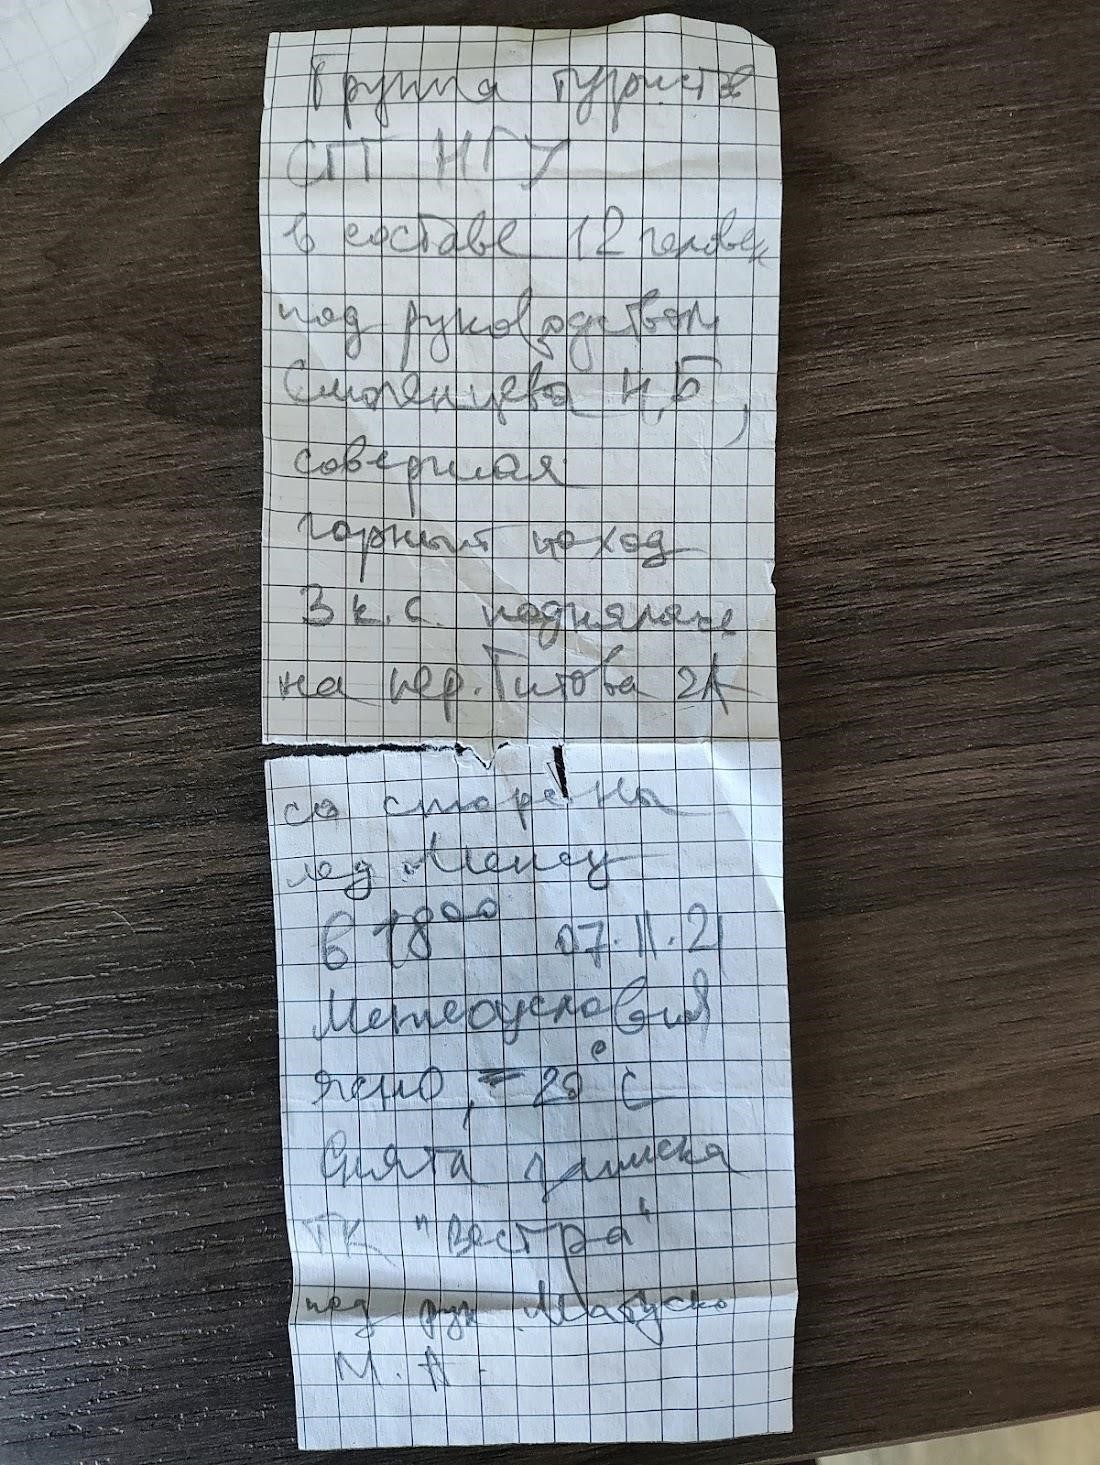 Группа туристов
СП НГУ
в составе 12 человек
под руководством
Смоленцева Н,Б,
совершая
горный поход
3 к.с. поднялась
на пер. Титова 2А
со стороны
лед. Менсу
в 18⁰⁰ 07.11.21
Метеоусловия
ясно, -20°С
Снята записка
ТК "Вестра"
под рук.
М.А.